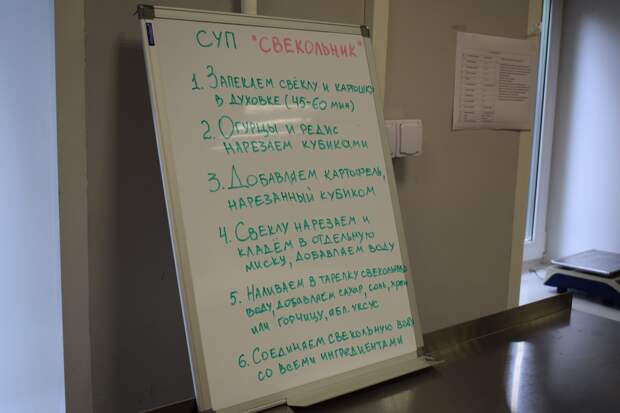 СУП "СВЕКОЛЬНИК"
1. ЗАПЕКАЕМ СВЁКЛУ И КАРТОШКУ
В ДУХОВКЕ (45-60 МИН)
2. ОГУРЦЫ И РЕДИС
НАРЕЗАЕМ КУБИКАМИ
3. ДОБАВЛЯЕМ КАРТОФЕЛЬ,
НАРЕЗАННЫЙ КУБИКОМ
4. СВЕКЛУ НАРЕЗАЕМ И
КЛАДЁМ В ОТДЕЛЬНУЮ
МИСКУ, ДОБАВЛЯЕМ ВОДУ
5. НАЛИВАЕМ В ТАРЕЛКУ СВЕКОЛЬНУЮ
ВОДУ, ДОБАВЛЯЕМ САХАР, СОЛЬ, ХРЕН
ИЛИ ГОРЧИЦУ, ЯБЛ. УКСУС
6. СОЕДИНЯЕМ СВЕКОЛЬНУЮ ВОДУ
СО ВСЕМИ ИНГРЕДИЕНТАМИ